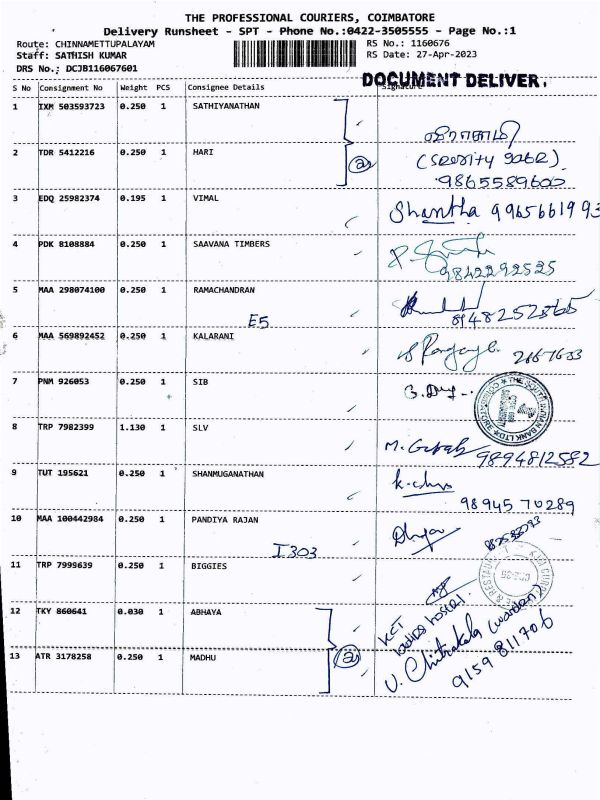 THE PROFESSIONAL COURIERS, COIMBATORE
Delivery Runsheet - SPT - Phone No.:0422-3505555 - Page No.:1
Route: CHINNAMETTUPALAYAM
Staff: SATHISH KUMAR
DRS No.: DCJB116067601
RS No.: 1160676
RS Date: 27-Apr-2023
DOCUMENT DELIVER.
S No Consignment No Weight PCS Consignee Details Signature
1 IXM 503593723 0.250 1 SATHIYANATHAN
வீராசாமி
2 TDR 5412216 0.250 1 HARI
(Security gate)
9865589600
3 EDQ 25982374 0.195 1 VIMAL
Shantha 9965661993
4 PDK 8108884 0.250 1 SAAVANA TIMBERS
9842292525
5 MAA 298074100 0.250 1 RAMACHANDRAN
E5
8148252865
6 MAA 569892452 0.250 1 KALARANI
2667633
7 PNM 926053 0.250 1 SIB
THE SOUTH INDIAN BANK LTD
COIMBATORE
8 TRP 7982399 1.130 1 SLV
9894812582
9 TUT 195621 0.250 1 SHANMUGANATHAN
98945 70289
10 MAA 100442984 0.250 1 PANDIYA RAJAN
I303
11 TRP 7999639 0.250 1 BIGGIES
12 TKY 860641 0.030 1 ABHAYA
KCT
ladies hostel
13 ATR 3178258 0.250 1 MADHU
U. Chitrakala (warden)
9159 811706